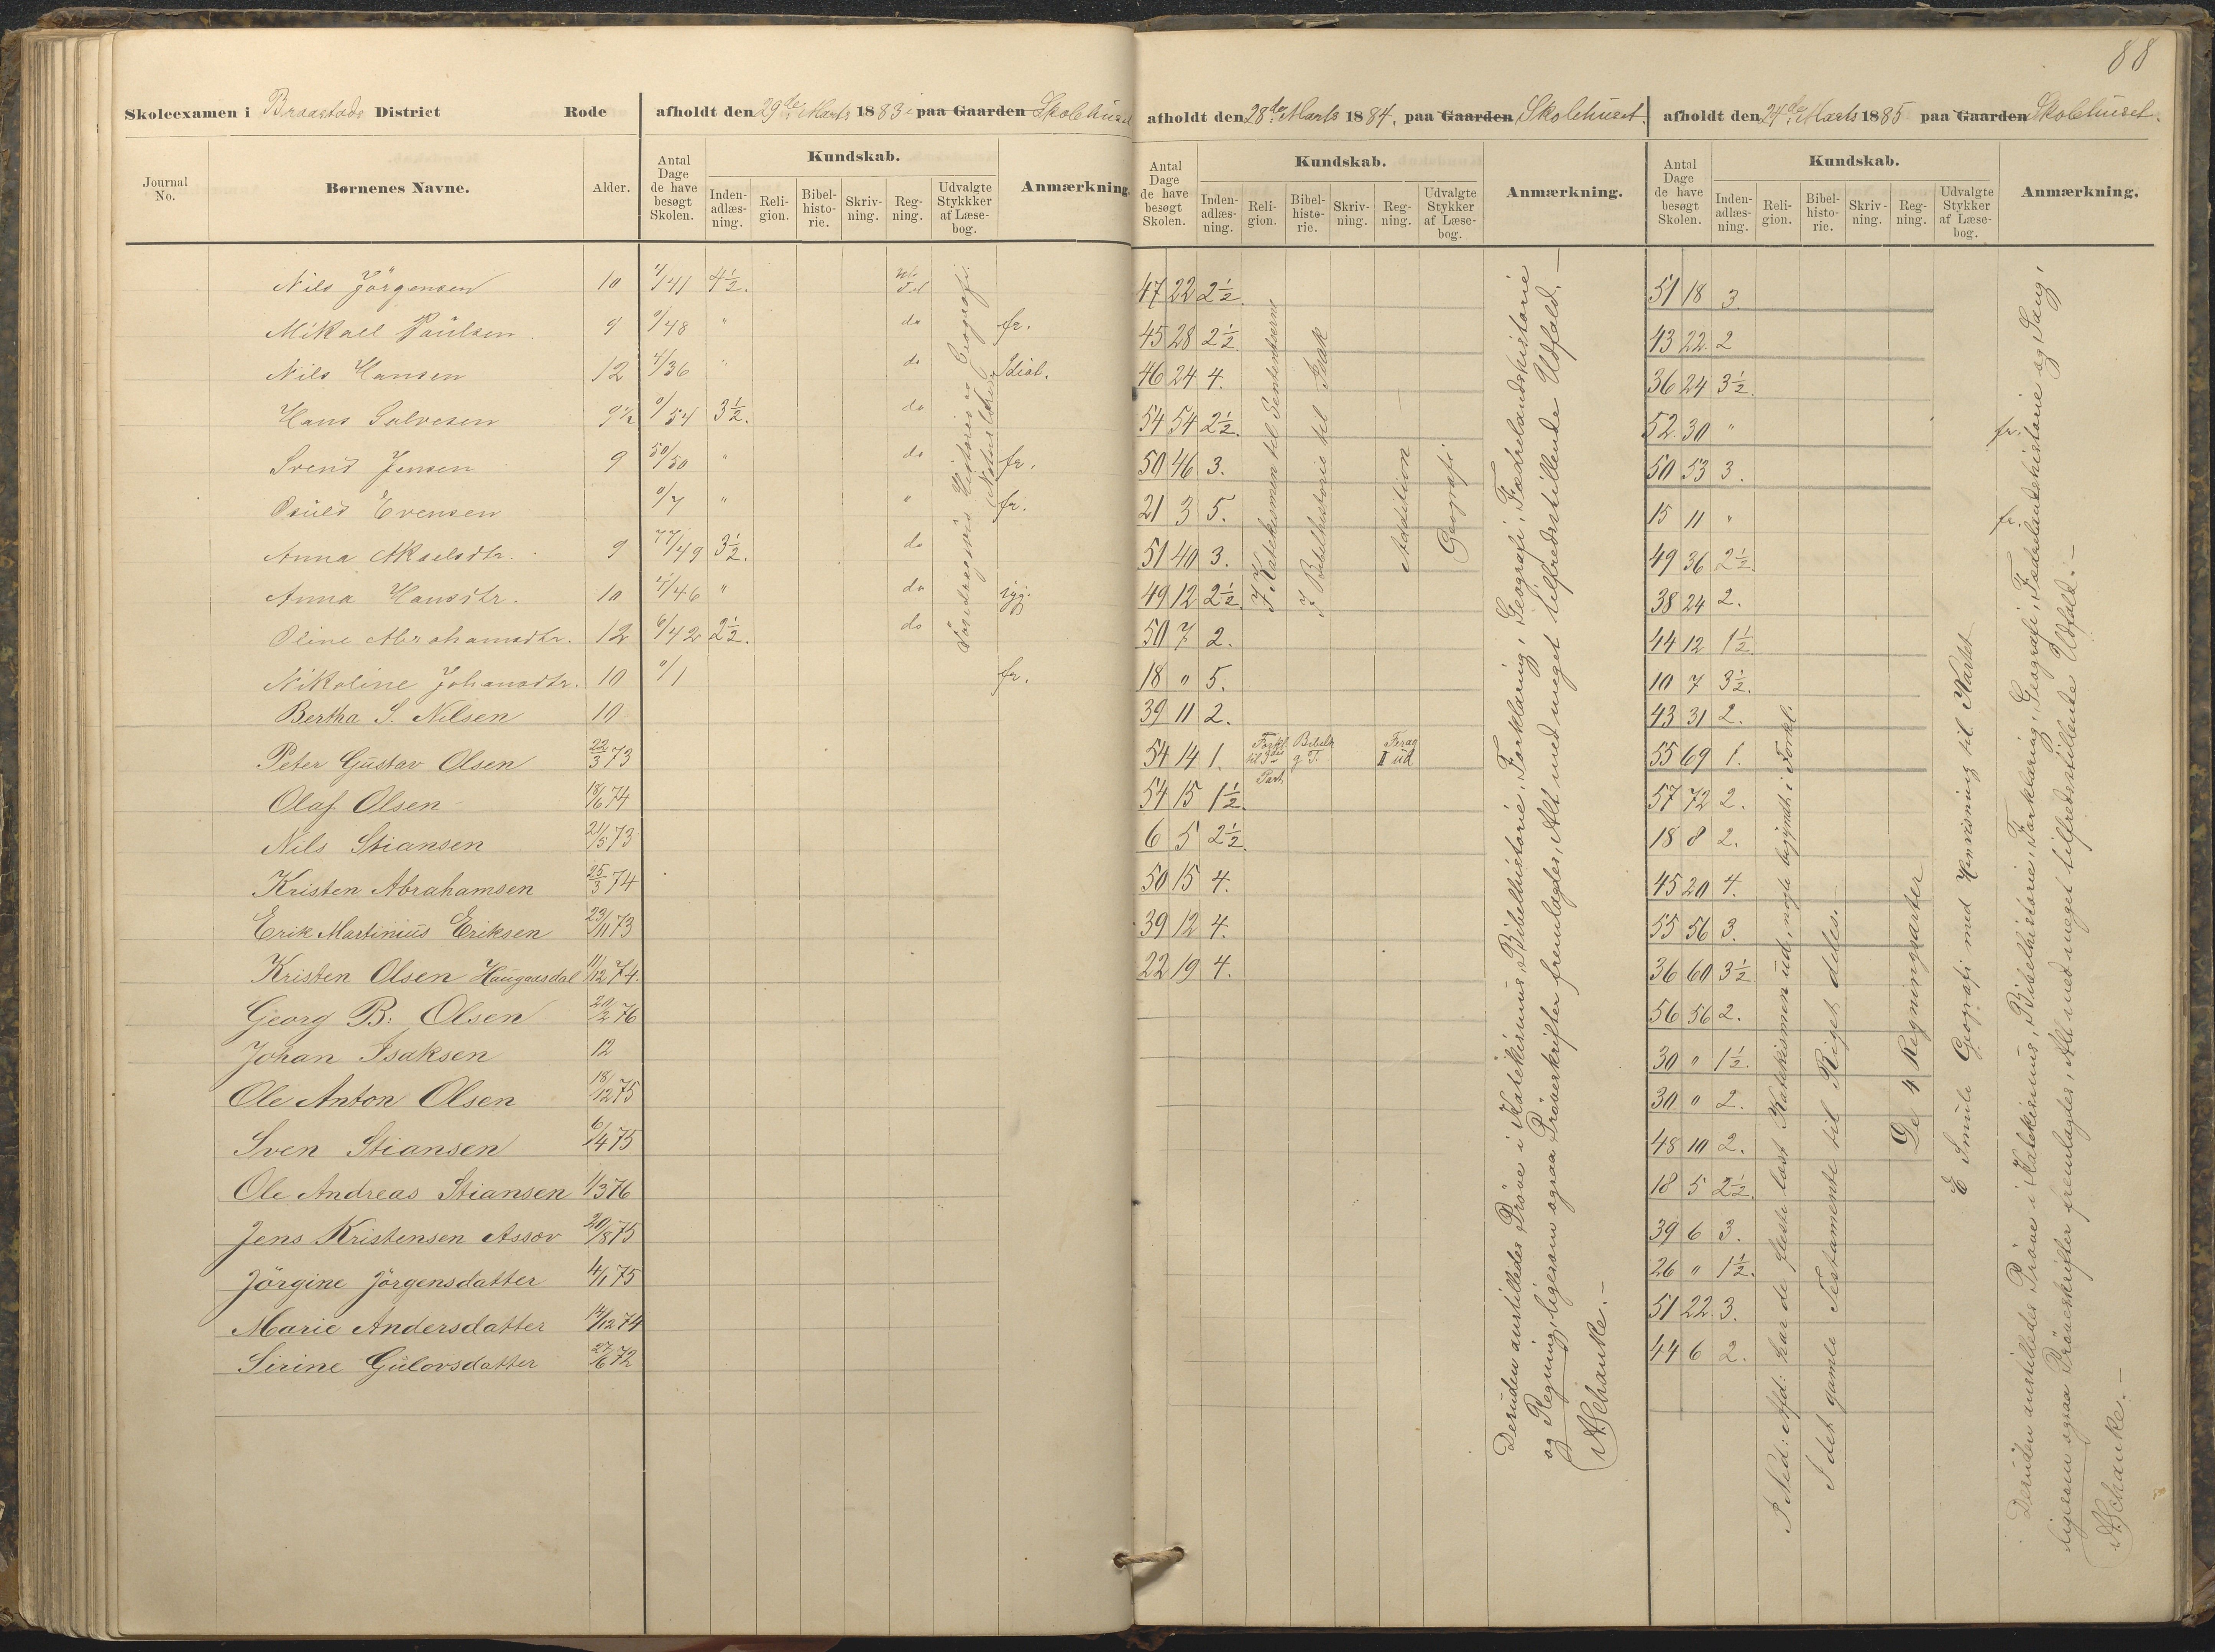 88
Skoleexamen i Braastads District Rode afholdt den 29de Marts 1883 paa Gaarden Skolehuset
afholdt den 28de Marts 1884. paa Gaarden Skolehuset.
afholdt den 24de Marts 1885 paa Gaarden Skolehuset.
Journal No. Børnenes Navne. Alder. Antal Dage de have besøgt Skolen. Kundskab. Inden-adlæs-ning. Reli-gion. Bibel-histo-rie. Skriv-ning. Reg-ning. Udvalgte Stykkker af Læse-bog. Anmærkning.
Antal Dage de have besøgt Skolen. Kundskab. Inden-adlæs-ning. Reli-gion. Bibel-histo-rie. Skriv-ning. Reg-ning. Udvalgte Stykker af Læse-bog. Anmærkning.
Antal Dage de have besøgt Skolen. Kundskab. Inden-adlæs-ning. Reli-gion. Bibel-histo-rie. Skriv-ning. Reg-ning. Udvalgte Stykker af Læse-bog. Anmærkning.
Nils Jörgensen 10 /41 4½. 47 22 2½. 51 18 3
Mikael Paulsen. 9 0/48 " do fr. 45 28 2½ 43 22. 2
Nils Hansen 12 4/36 " do Idiot. 46 24 4. 36 24 3½.
Hans Salvesen 9½ 0/54 3½. do 54 54 2½. 52. 30 " fr.
Svend Jensen 9 50/50 " do fr. 50 46 3. 50 53 3.
Osuld Evensen 0/7 " " fr. 21 3 5. 15 11 " fr.
Anna Akselsdtr. 9 77/49 3½. do 51 40 3. 49 36 2½.
Anna Hansdtr. 10 4/46 " do syg. 49 12 2½. 38 24 2.
Oline Abrahamsdtr. 12 6/42 2½. do 50 7 2. 44 12 1½
Nikoline Johansdtr. 10 0/1 fr. 18 " 5. 10 7 3½.
Bertha S. Nilsen 10 39 11 2. 43 31 2.
Peter Gustav Olsen 22/3 73 54 14 1. Forkl. til 3die Part. Bibelh g. T. I ud 55 69 1.
Olaf Olsen 18/6 74 54 15 1½. 57 72 2.
Nils Stiansen 21/5 73 6 5 2½. 18 8 2.
Kristen Abrahamsen 25/3 74 50 15 4. 45 20 4.
Erik Martinius Eriksen 23/11 73 39 12 4. 55 56 3.
Kristen Olsen Haugaasdal 11/12 74. 22 19 4. 36 60 3½
Georg B. Olsen 20/2 76 56 56 2.
Johan Isaksen 12 30 " 1½.
Ole Anton Olsen 18/12 75 30 " 2.
Sven Stiansen 6/4 75 48 10 2.
Ole Andreas Stiansen 1/3 76 18 5 2½.
Jens Kristensen Assev 20/8 75 39 6 3.
Jörgine Jörgensdatter 4/1 75 26 " 1½.
Marie Andersdatter 14/12 74 51 22. 3.
Sirine Gulovsdatter 27/6 72 44 6 2.
Historie og Geografi.
I Katekismen til Sententserne
I Bibelhistorie til Isak
Addition
Geografi
Desuden anstilledes Prøve i Katekismus, Bibelhistorie, Forklaring, Geografi, Fædrelandshistorie
og Regning, ligesom ogsaa Prøveskrifter fremlagdes, Alt med meget tilfredsstillende Udfald. —
A Schanke. —
I Ned: Afd: har de fleste læst Katekismen ud, nogle begyndt i Forkl.
I det gamle Testamente til Riget deles.
De 4 Regningsarter
E Smule Geografi med Henvisning til Kartet
Desuden anstilledes Prøve i Katekismus, Bibelhistorie, Forklaring, Geografi, Fædrelandshistorie og Sang,
ligesom ogsaa Prøveskrifter fremlagdes, Alt med meget tilfredsstillende Udfald. —
A Schanke. —